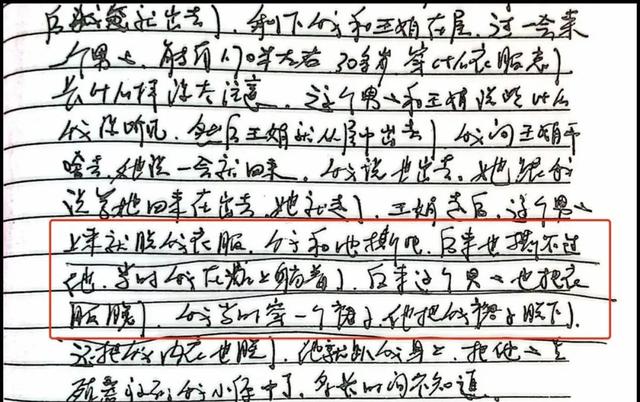 后就出去了，剩下我和王娟在屋，过一会来
一个男人，能有170年左右，30多岁，穿什么衣服忘了
长什么样没太注意，这个男人和王娟说些什么
我没听见，然后王娟就从屋中出去了，我问王娟干
啥去，她说一会就回来，我说也出去，她跟我
说等她回来在出去，她就走了，王娟走后，这个男人
上来就脱我衣服，我和他撕吧，后来也撕不过
他，当时我在炕上躺着了，后来这个男人也把衣
服脱了，我当时穿一个裙子，他把我裙子脱下了，
还把我内衣也脱了，他就趴我身上，把他的生
殖器放到我小便中了，多长时间不知道